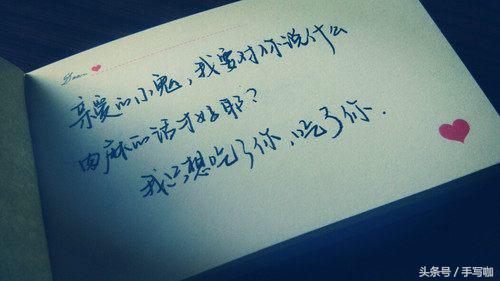 亲爱的小鬼，我要对你说什么
肉麻的话才好耶？
我只想吃了你、吃了你.
头条号 / 手写咖